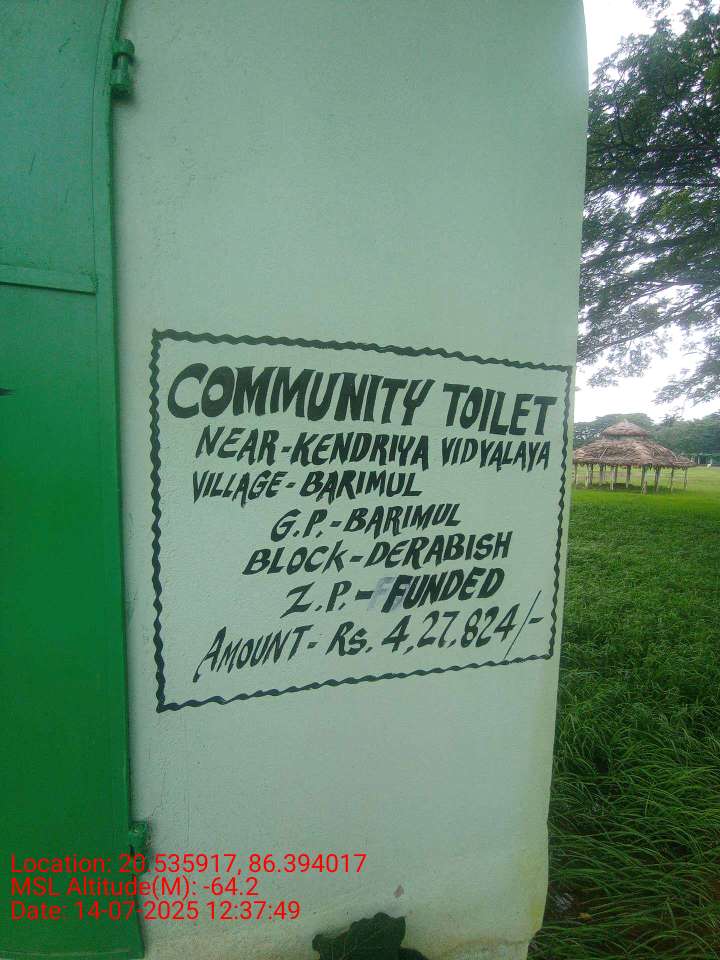 COMMUNITY TOILET
NEAR-KENDRIYA VIDYALAYA
VILLAGE-BARIMUL
G.P.-BARIMUL
BLOCK-DERABISH
Z.P.-FUNDED
AMOUNT- Rs. 4,27,824/-
Location: 20.535917, 86.394017
MSL Altitude(M): -64.2
Date: 14-07-2025 12:37:49